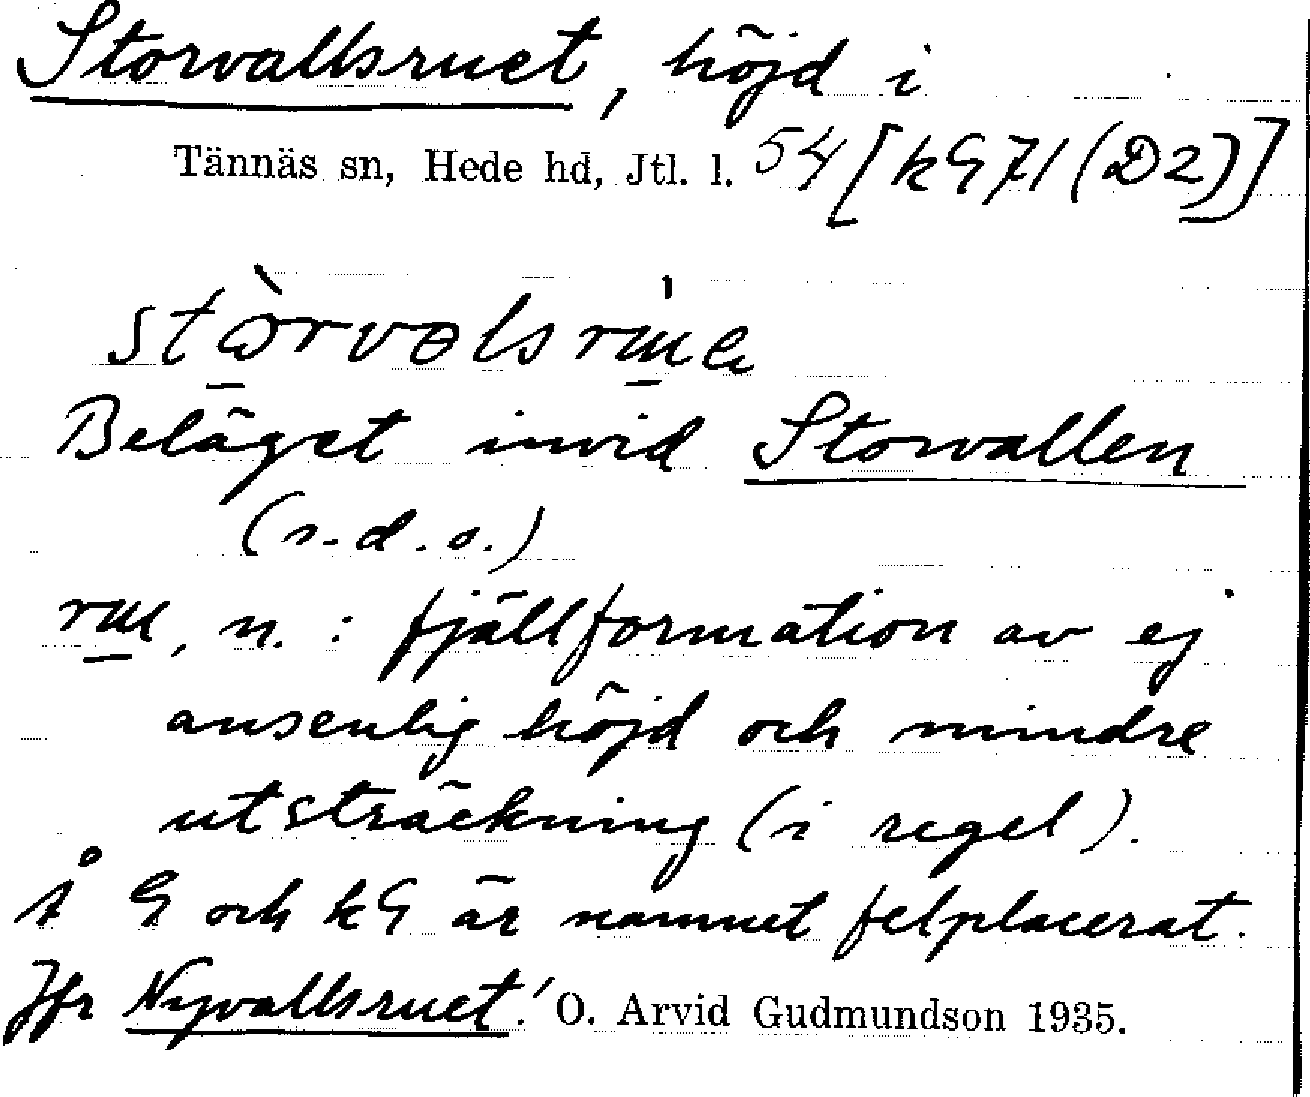 Storvallsruet, höjd i
Tännäs sn, Hede hd, Jtl. l. 54 [kG 71 (D2)]
Beläget invid Storvallen
(s.d.o.)
n. : fjällformation av ej
ansenlig höjd och mindre
utsträckning (i regel).
Å G och kG är namnet felplacerat.
Jfr Nyvallsruet! O. Arvid Gudmundson 1935.